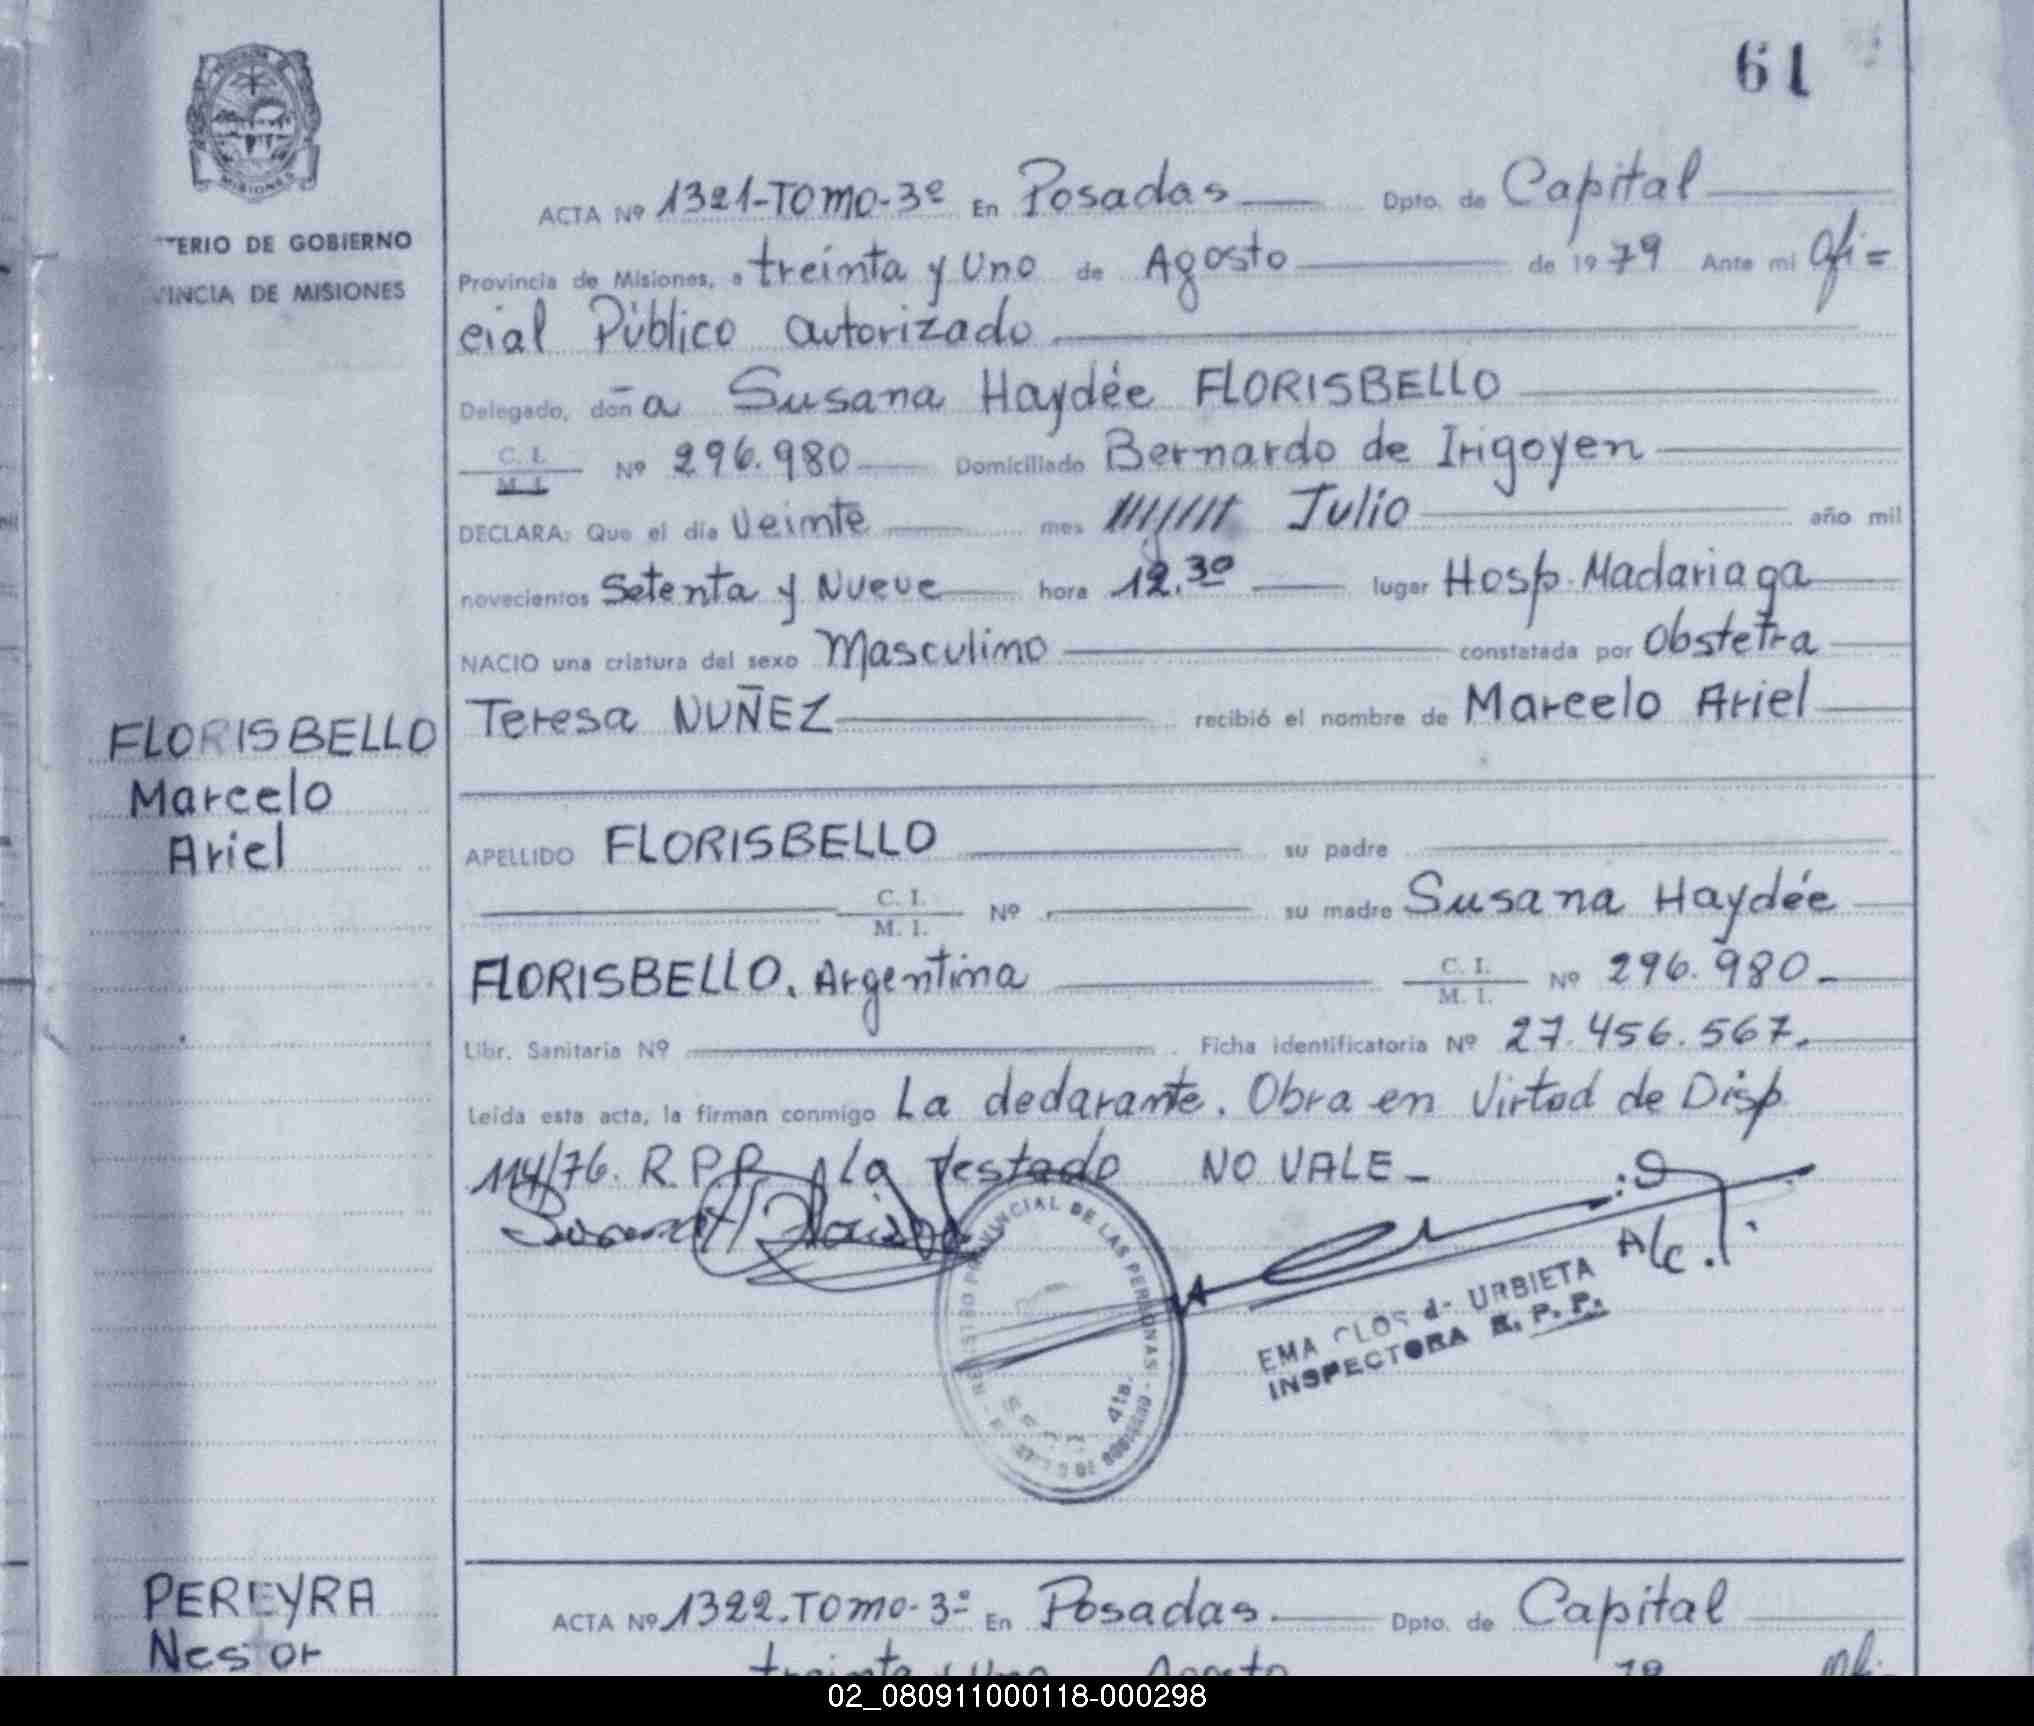 61
MISIONES
TERIO DE GOBIERNO
VINCIA DE MISIONES
ACTA Nº 1321-TOMO-3º En Posadas Dpto. de Capital
Provincia de Misiones, a treinta y Uno de Agosto de 1979 Ante mi Ofi=
cial Público autorizado
Delegado, doña Susana Haydée FLORISBELLO
C. I. M. I. Nº 296.980 Domiciliado Bernardo de Irigoyen
DECLARA: Que el día Veinte mes Julio año mil
novecientos Setenta y Nueve hora 12.30 lugar Hosp. Madariaga
NACIO una criatura del sexo Masculino constatada por Obstetra
Teresa NUÑEZ recibió el nombre de Marcelo Ariel
FLORISBELLO
Marcelo
Ariel
APELLIDO FLORISBELLO su padre
C. I. M. I. Nº su madre Susana Haydée
FLORISBELLO. Argentina C. I. M. I. Nº 296.980-
Libr. Sanitaria Nº Ficha identificatoria Nº 27.456.567.
Leída esta acta, la firman conmigo La declarante. Obra en Virtud de Disp.
114/76. R.P.P. Lo testado NO VALE-
PROVINCIAL DE LAS PERSONAS
EMA CLOS de URBIETA
INSPECTORA R. P. P.
PEREYRA
Nestor
ACTA Nº 1322.TOMO-3º En Posadas. Dpto. de Capital
treinta y Uno Agosto 79 Ofi-
02_080911000118-000298